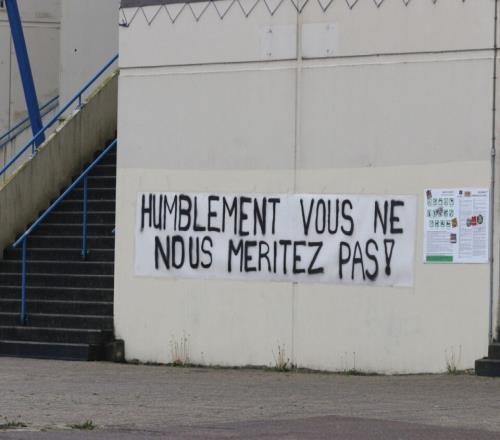 HUMBLEMENT VOUS NE
NOUS MERITEZ PAS!